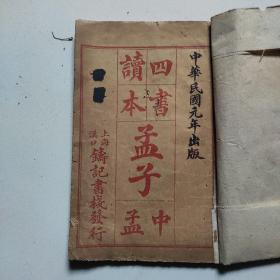 中華民國元年出版
四書
讀本
孟子
中孟
上海
漢口
鑄記書棧發行